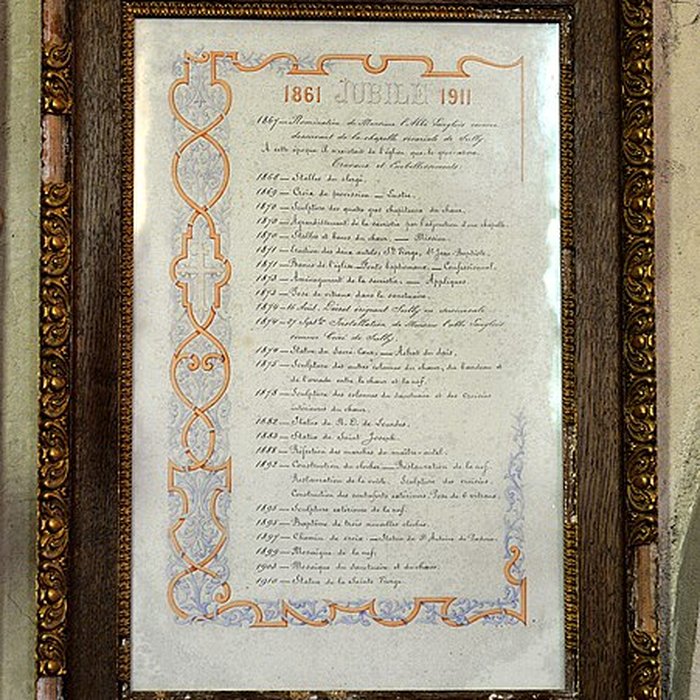 1861 JUBILE 1911
1867 — Nomination de Monsieur l'Abbé Langlois comme
desservant de la chapelle vicariale de Sully.
A cette époque il n'existait de l'église que le gros-œuvre.
Travaux et Embellissements.
1868 — Stalles du clergé.
1869 — Croix de procession — Lustre.
1870 — Sculpture des quatre gros chapiteaux du chœur.
1870 — Agrandissement de la sacristie par l'adjonction d'une chapelle.
1870 — Stalles et bancs du chœur. — Mission.
1871 — Erection des deux autels, Ste Vierge, St Jean-Baptiste.
1871 — Bancs de l'église — Fonts baptismaux — Confessionnal.
1873 — Aménagement de la sacristie — Appliques.
1873 — Pose de vitraux dans le sanctuaire.
1874 — 16 Août. Décret érigeant Sully en succursale
1874 — 27 Septbre Installation de Monsieur l'abbé Langlois
comme Curé de Sully.
1874 — Statue du Sacré-Cœur — Achat du dais.
1875 — Sculpture des autres colonnes du chœur, du bandeau et
de l'arcade entre le chœur et la nef.
1878 — Sculpture des colonnes du sanctuaire et des croisées
intérieures du chœur.
1882 — Statue de N. D. de Lourdes.
1883 — Statue de Saint Joseph.
1888 — Réfection des marches du maître-autel.
1892 — Construction du clocher — Restauration de la nef.
Restauration de la voûte. Sculpture des croisées
Construction des contreforts extérieurs. Pose de 6 vitraux.
1895 — Sculpture extérieure de la nef.
1895 — Baptême de trois nouvelles cloches.
1897 — Chemin de croix — Statue de St Antoine de Padoue.
1899 — Mosaïque de la nef.
1903 — Mosaïque du sanctuaire et du chœur.
1910 — Statue de la Sainte Vierge.